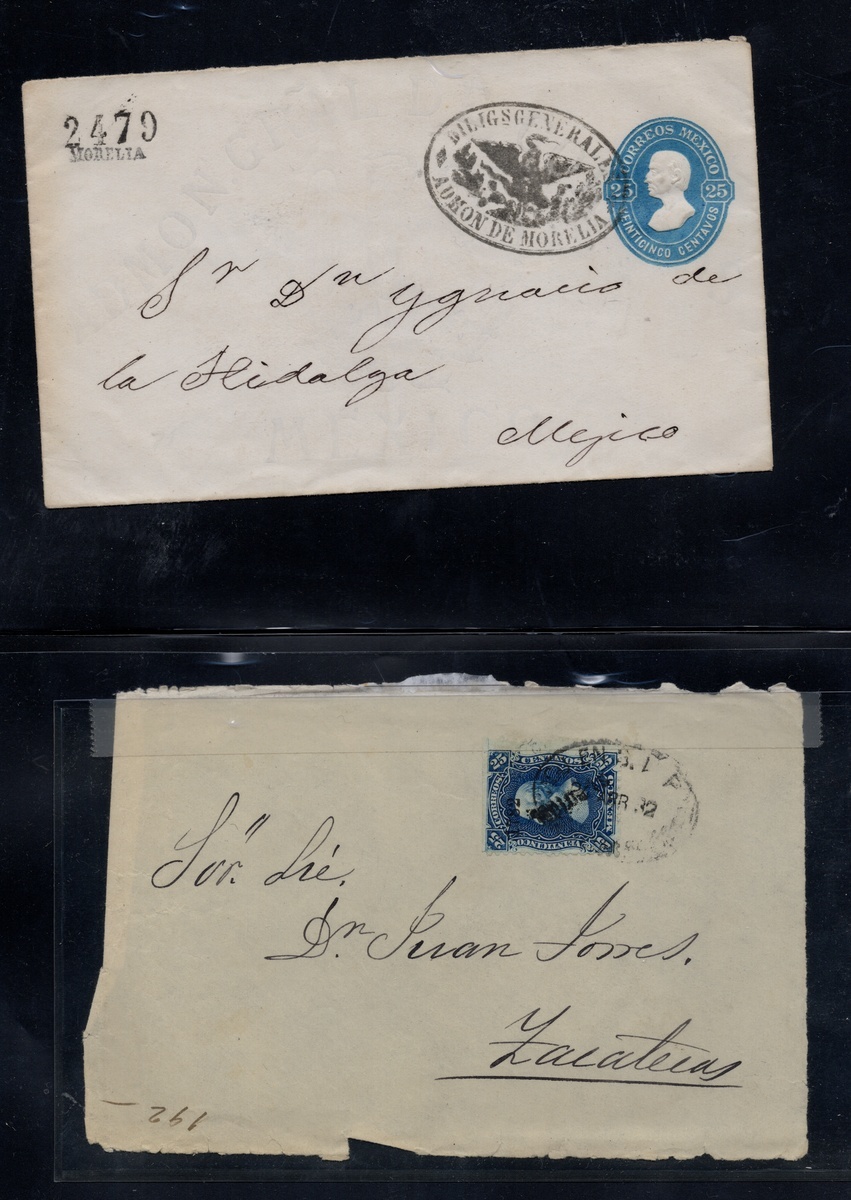 2479
MORELIA
DILIGS GENERALES
ADMON DE MORELIA
CORREOS MEXICO
25 25
VEINTICINCO CENTAVOS
Sr Dn Ygnacio de
la Hidalga
Mejico
25 CENTAVOS 25
CORREOS
MEXICO
25 VEINTICINCO 25
Sor. Lié.
Dn. Juan Torres.
Zacatecas
192